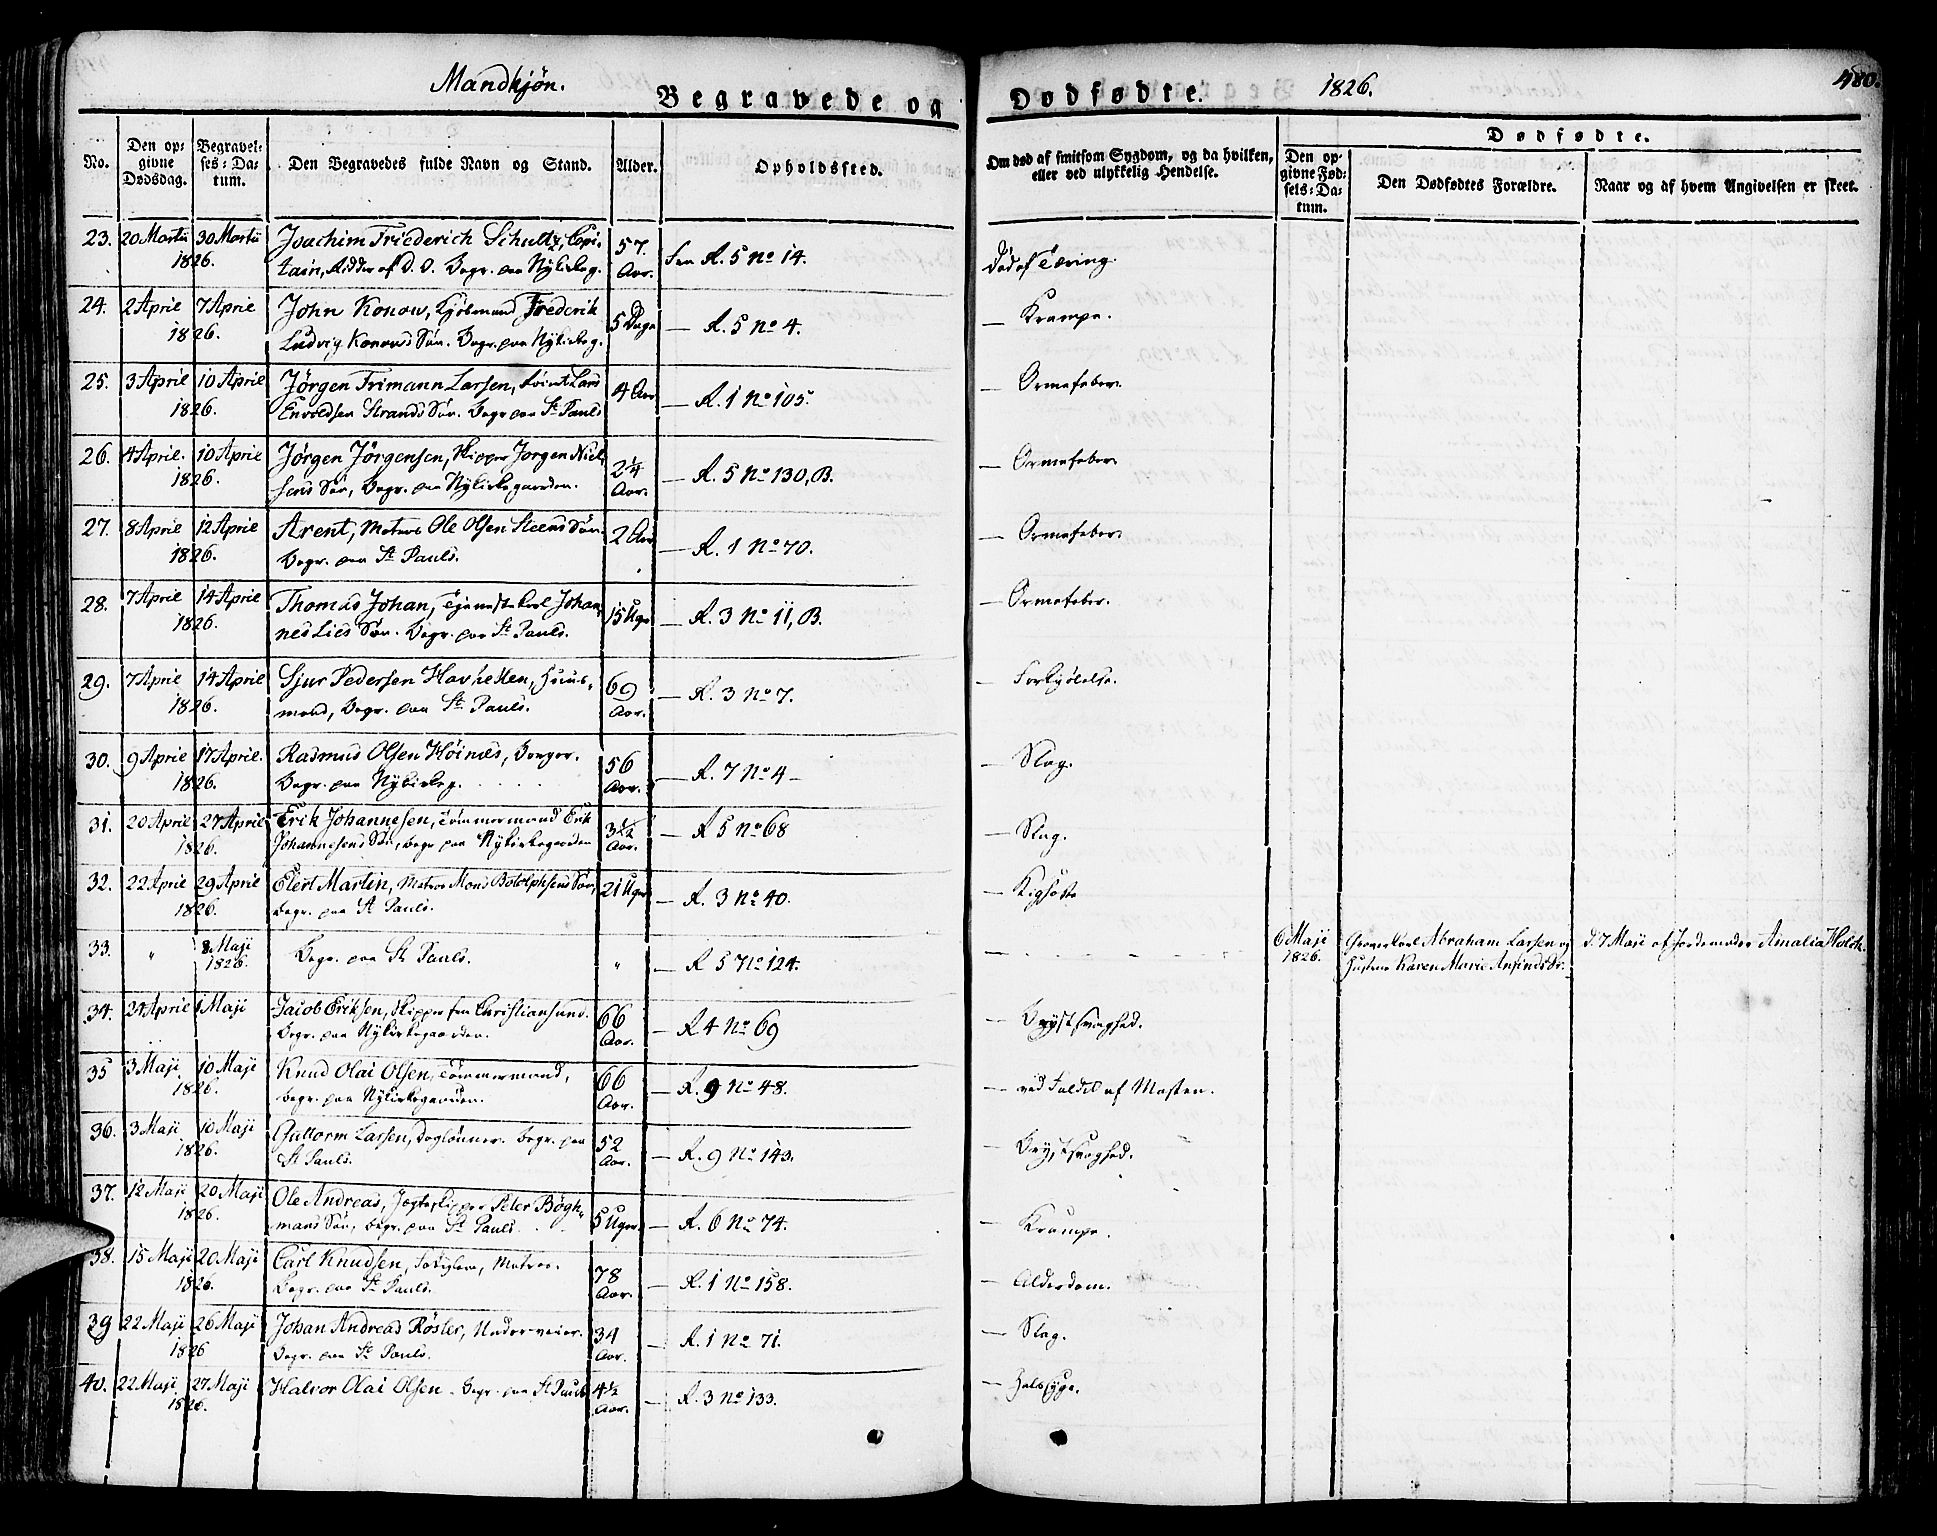 Mandkjøn.
Begravede og Dødfødte.
1826.
480.
No.
Den opgivne Dødsdag.
Begravelses-Datum.
Den Begravedes fulde Navn og Stand.
Alder.
Opholdssted.
Om død af smitsom Sygdom, og da hvilken, eller ved ulykkelig Hendelse.
Dødfødte.
Den opgivne Fødsels-Datum.
Den Dødfødtes Forældre.
Naar og af hvem Angivelsen er skeet.
23. 20 Martii 30 Martii Joachim Friederich Schultz, Capi- 57 fra R. 5 No 14. Død af Tæring.
1826. tain, Ridder af D. O. Begr. paa Nykirkeg. Aar.
24. 2 Aprie 7 Aprie John Konow, Kjøbmand Frederik 5 Dage — R. 5 No 4. — Krampe.
1826. Ludvig Konows Søn. Begr. paa Nykirkeg.
25. 3 Aprie 10 Aprie Jørgen Frimann Larsen, Lars 4 Aar — R. 1 No 105. — Ormefeber.
1826. Envoldsen Strands Søn. Begr paa St Pauls
26. 4 Aprie. 10 Aprie Jørgen Jørgensen, Skipper Jørgen Niel- 2 1/4 Aar. — R. 5 No 130, B. — Ormefeber.
1826. sens Søn, Begr. paa Nykirkegaarden.
27. 8 Aprie 12 Aprie Arent, Matros Ole Olsen Steens Søn. 2 Aar — R. 1 No 70. — Ormefeber.
1826. Begr. paa St Pauls.
28. 7 Aprie 14 Aprie Thomas Johan, Tjenestekarl Johan- 15 Uger — R. 3 No 11, B. — Ormefeber.
1826. nes Lies Søn. Begr. paa St Pauls.
29. 7 Aprie 14 Aprie Sjur Pedersen Havhellen, Huus- 69 Aar. — R. 3 No 7. — Forkjølelse.
1826. mand, Begr. paa St Pauls.
30. 9 Aprie 17 Aprie. Rasmus Olsen Høinæs, Borger. 56 Aar. — R. 7 No 4 — — Slag.
1826. Begr. paa Nykirkeg.
31. 20 Aprie 27 Aprie Erik Johannesen, Tømmermand Erik 3 1/2 Aar. — R 5 No 68 — Slag.
1826. Johannesens Søn, begr paa Nykirkegaarden
32. 22 Aprie 29 Aprie Elert Martin, Matros Mons Botolphsens Søn, 21 Uger — R. 3 No 40. — Kighoste
1826. begr. paa St Pauls.
33. " 8 Maji 1826. Begr. paa St Pauls. " — R 5 No 124. — 6 Maji 1826. Abraham Larsen og d. 7 Maji af Jordemoder Amalia Holck.
Hustrue Karen Marie Ansinds Dr.
34. 24 Aprie 1 Maji Jacob Eriksen, Skipper fra Christiansund. 66 Aar. — R 4 No 69 — Brystsvaghed.
Begr. paa Nykirkegaarden.
35 3 Maji 10 Maji Knud Olai Olsen, Tømmermand, 66 Aar. — R. 9 No 48. — ved Faldet af Masten.
1826. begr. paa Nykirkegaarden.
36. 3 Maji 10 Maji Guttorm Larsen, Daglønner. begr. paa 52 Aar. — R. 9 No 143. — Brystsvaghed.
1826. St Pauls.
37. 12 Maji 20 Maji Ole Andreas, Jægteskipper Peter Bøgh- 5 Uger. — R. 6 No 74. — Krampe.
1826. mans Søn, begr. paa St Pauls.
38. 15 Maji 20 Maji Carl Knudsen, Matros. 78 Aar. — R. 1 No 158. — Alderdom.
1826. Begr. paa St Pauls.
39 22 Maji 26 Maji Johan Andreas Røsler, Underveier. 34 Aar. — R. 1 No 71. — Slag.
1826 Begr. paa St Pauls.
40. 22 Maji 27 Maji Halvor Olai Olsen. Begr. paa St Pauls 4 1/2 Aar. — R. 3 No 133. — Halssyge.
1826.